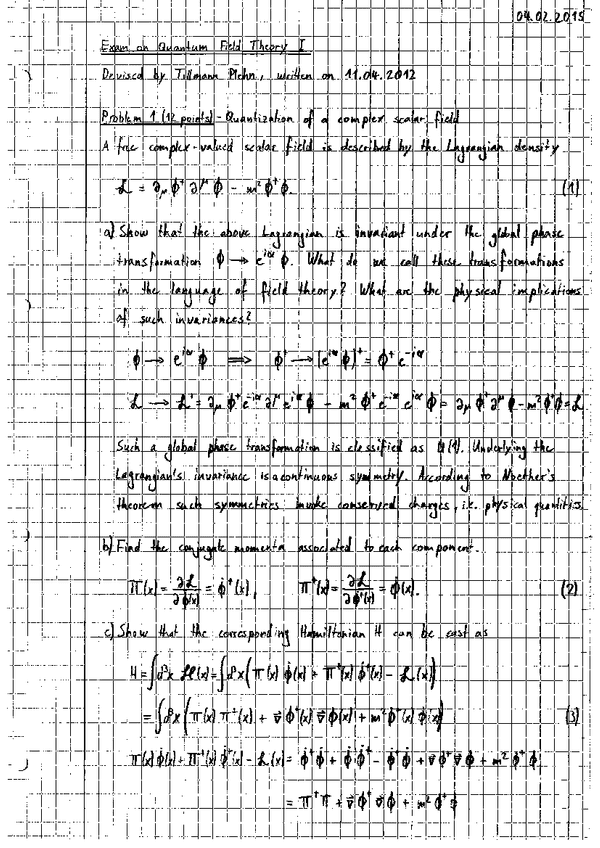 04.02.2015
Exam on Quantum Field Theory I
Devised by Tillmann Plehn, written on 11.04.2012
Problem 1 (12 points) - Quantization of a complex scalar field
A free complex-valued scalar field is described by the Lagrangian density
ℒ = ∂_μ ϕ† ∂^μ ϕ - m² ϕ† ϕ. (1)
a) Show that the above Lagrangian is invariant under the global phase
transformation ϕ → e^{iα} ϕ. What do we call these transformations
in the language of field theory? What are the physical implications
of such invariances?
ϕ → e^{iα} ϕ ⟹ ϕ† → (e^{iα} ϕ)† = ϕ† e^{-iα}
ℒ → ℒ' = ∂_μ ϕ† e^{-iα} ∂^μ e^{iα} ϕ - m² ϕ† e^{-iα} e^{iα} ϕ = ∂_μ ϕ† ∂^μ ϕ - m² ϕ† ϕ = ℒ
Such a global phase transformation is classified as U(1). Underlying the
Lagrangian's invariance is a continuous symmetry. According to Noether's
theorem such symmetries invoke conserved charges, i.e. physical quantities.
b) Find the conjugate momenta associated to each component.
Π(x) = ∂ℒ/∂ϕ̇(x) = ϕ̇†(x), Π†(x) = ∂ℒ/∂ϕ̇†(x) = ϕ̇(x). (2)
c) Show that the corresponding Hamiltonian H can be cast as
H = ∫d³x ℋ(x) = ∫d³x (Π(x) ϕ̇(x) + Π†(x) ϕ̇†(x) - ℒ(x))
= ∫d³x (Π(x) Π†(x) + ∇⃗ϕ†(x) ∇⃗ϕ(x) + m² ϕ†(x) ϕ(x)) (3)
Π(x) ϕ̇(x) + Π†(x) ϕ̇†(x) - ℒ(x) = ϕ̇† ϕ̇ + ϕ̇ ϕ̇† - ϕ̇† ϕ̇ + ∇⃗ϕ† ∇⃗ϕ + m² ϕ† ϕ
= Π† Π + ∇⃗ϕ† ∇⃗ϕ + m² ϕ† ϕ